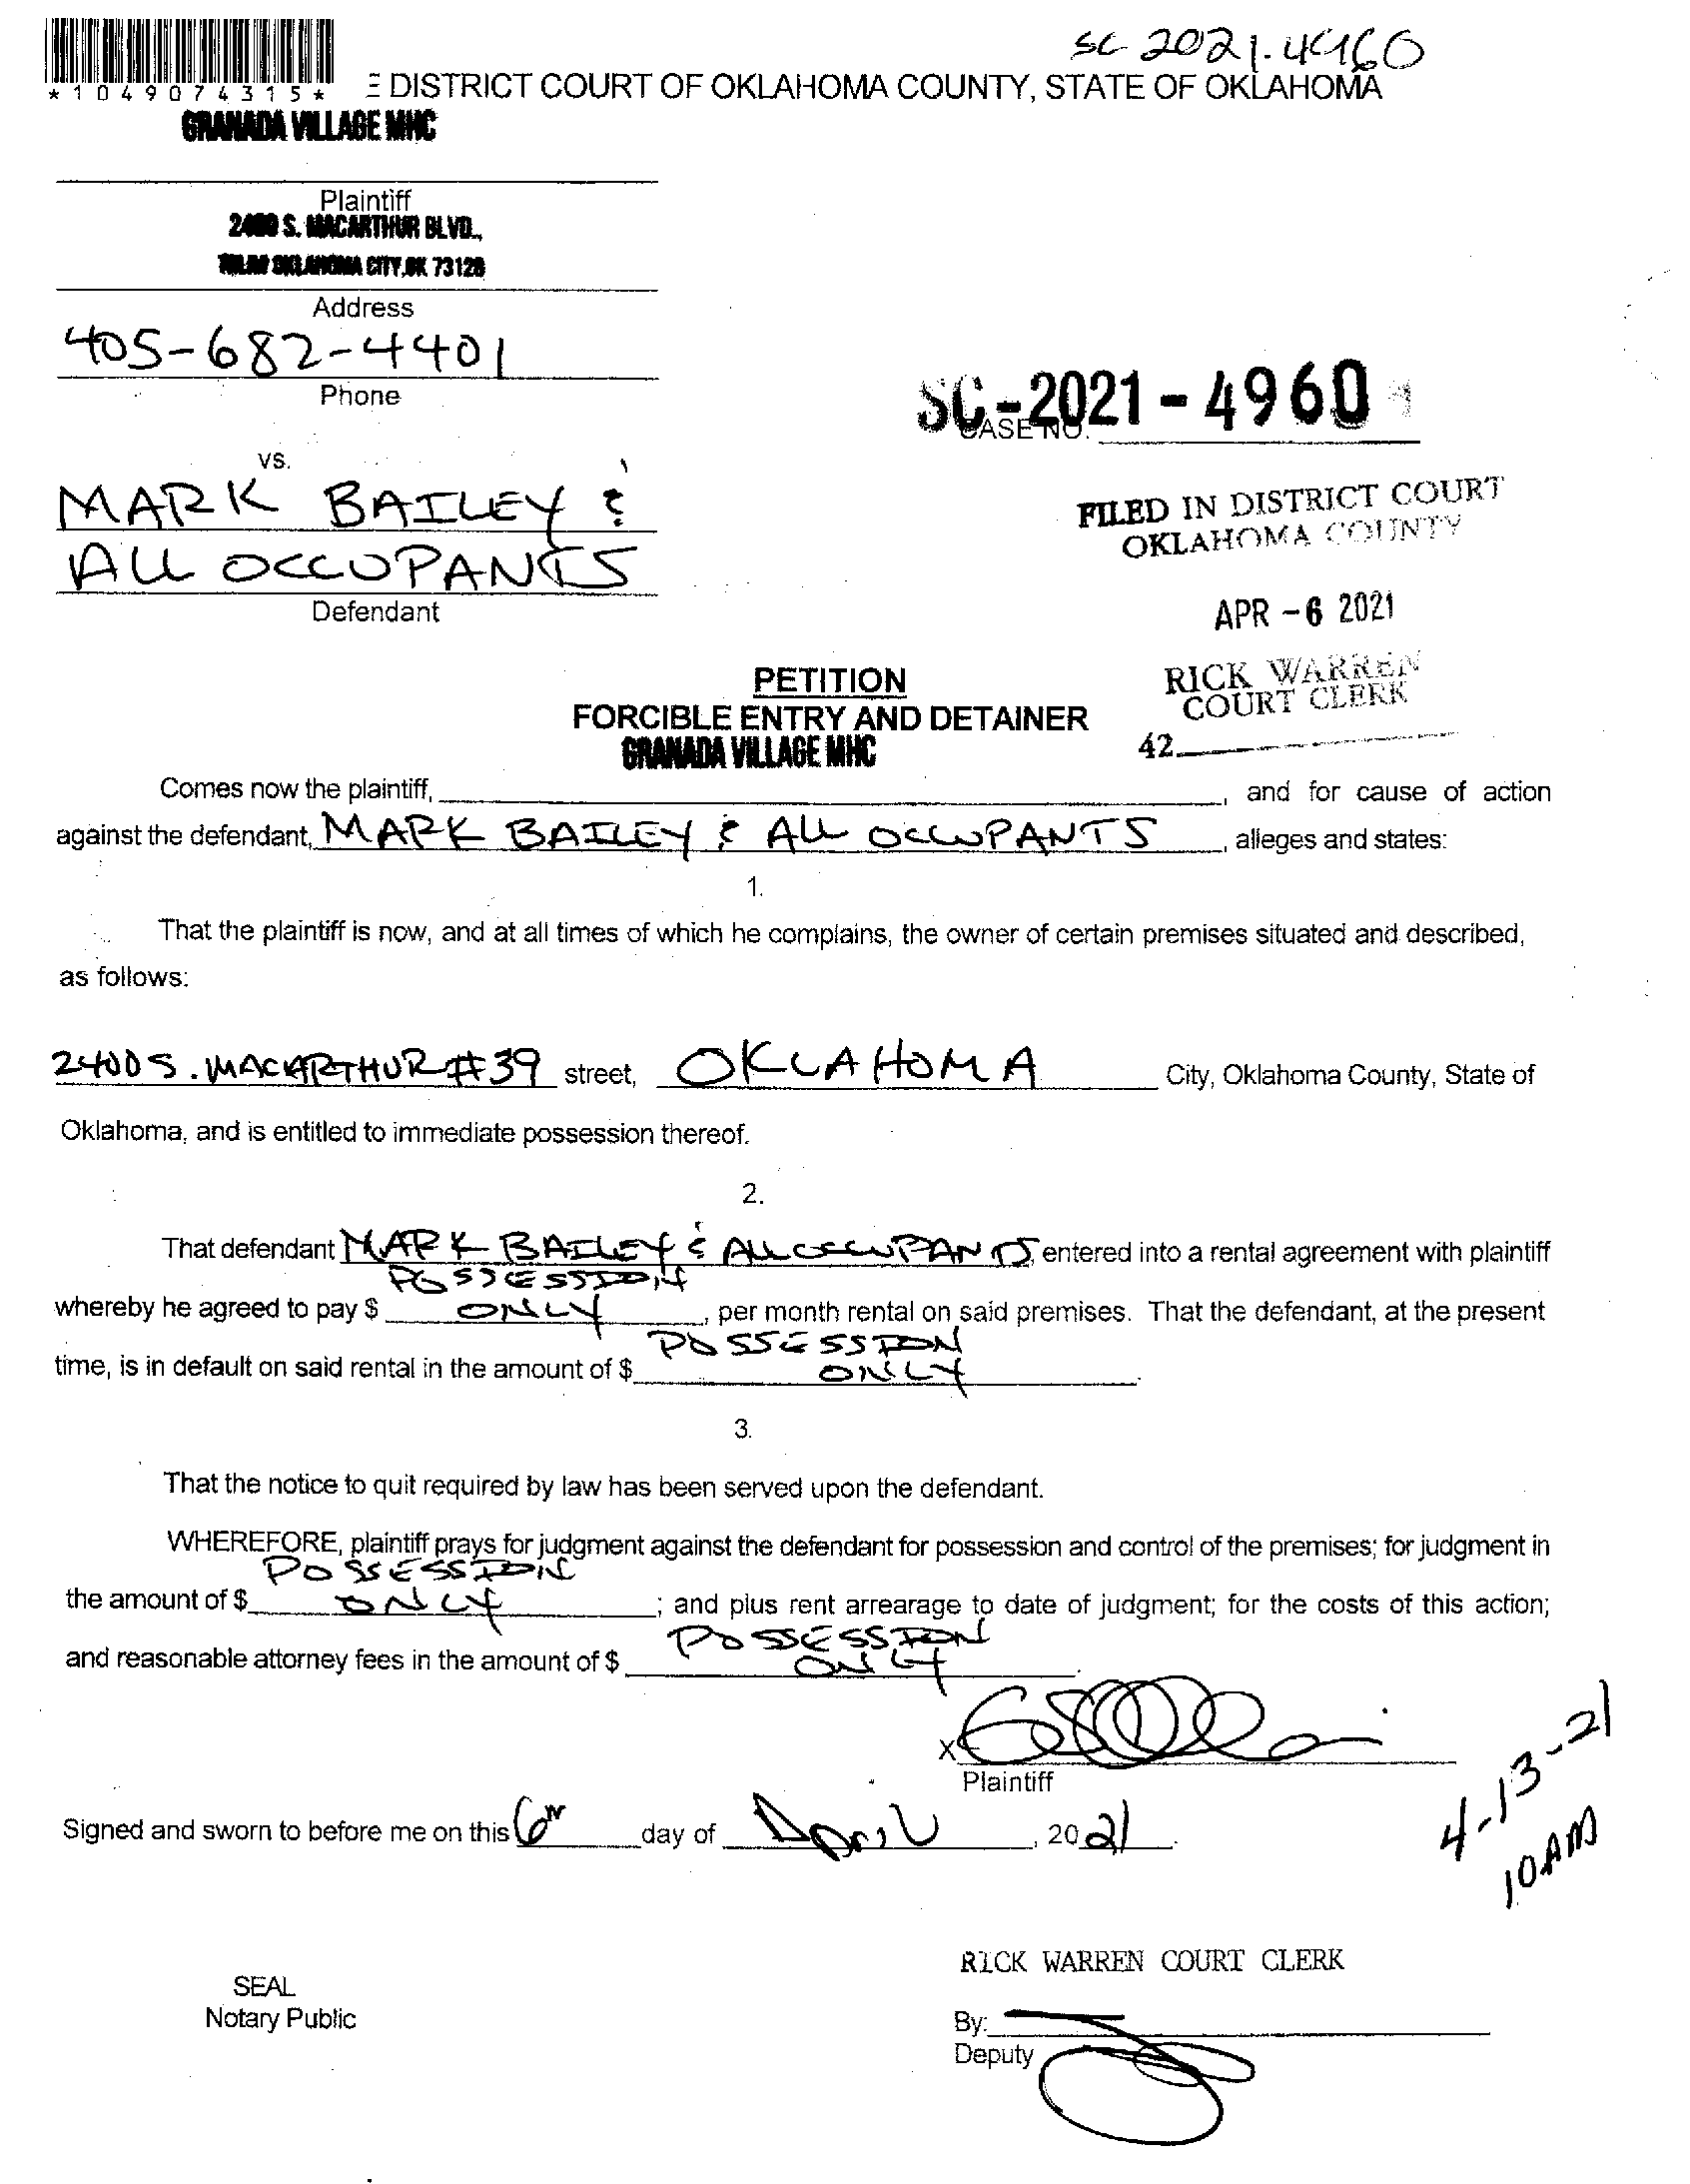 SC 2021.4960
*1049074315*
E DISTRICT COURT OF OKLAHOMA COUNTY, STATE OF OKLAHOMA
GRANADA VILLAGE MHC
Plaintiff
2400 S. MACARTHUR BLVD.,
OKLAHOMA CITY, OK 73128
Address
405-682-4401
Phone
SC-2021-4960
CASE NO.
vs.
MARK BAILEY &
ALL OCCUPANTS
Defendant
FILED IN DISTRICT COURT
OKLAHOMA COUNTY
APR -6 2021
RICK WARREN
COURT CLERK
42
PETITION
FORCIBLE ENTRY AND DETAINER
GRANADA VILLAGE MHC
Comes now the plaintiff, , and for cause of action
against the defendant, MARK BAILEY & ALL OCCUPANTS, alleges and states:
1.
That the plaintiff is now, and at all times of which he complains, the owner of certain premises situated and described,
as follows:
2400 S. MACARTHUR #39 street, OKLAHOMA City, Oklahoma County, State of
Oklahoma, and is entitled to immediate possession thereof.
2.
That defendant MARK BAILEY & ALL OCCUPANTS, entered into a rental agreement with plaintiff
POSSESSION
whereby he agreed to pay $ ONLY, per month rental on said premises. That the defendant, at the present
POSSESSION
time, is in default on said rental in the amount of $ ONLY.
3.
That the notice to quit required by law has been served upon the defendant.
WHEREFORE, plaintiff prays for judgment against the defendant for possession and control of the premises; for judgment in
POSSESSION
the amount of $ ONLY; and plus rent arrearage to date of judgment; for the costs of this action;
POSSESSION
and reasonable attorney fees in the amount of $ ONLY.
X
Plaintiff
Signed and sworn to before me on this 6th day of April, 2021.
4-13-21
10AM
RICK WARREN COURT CLERK
SEAL
Notary Public
By:
Deputy